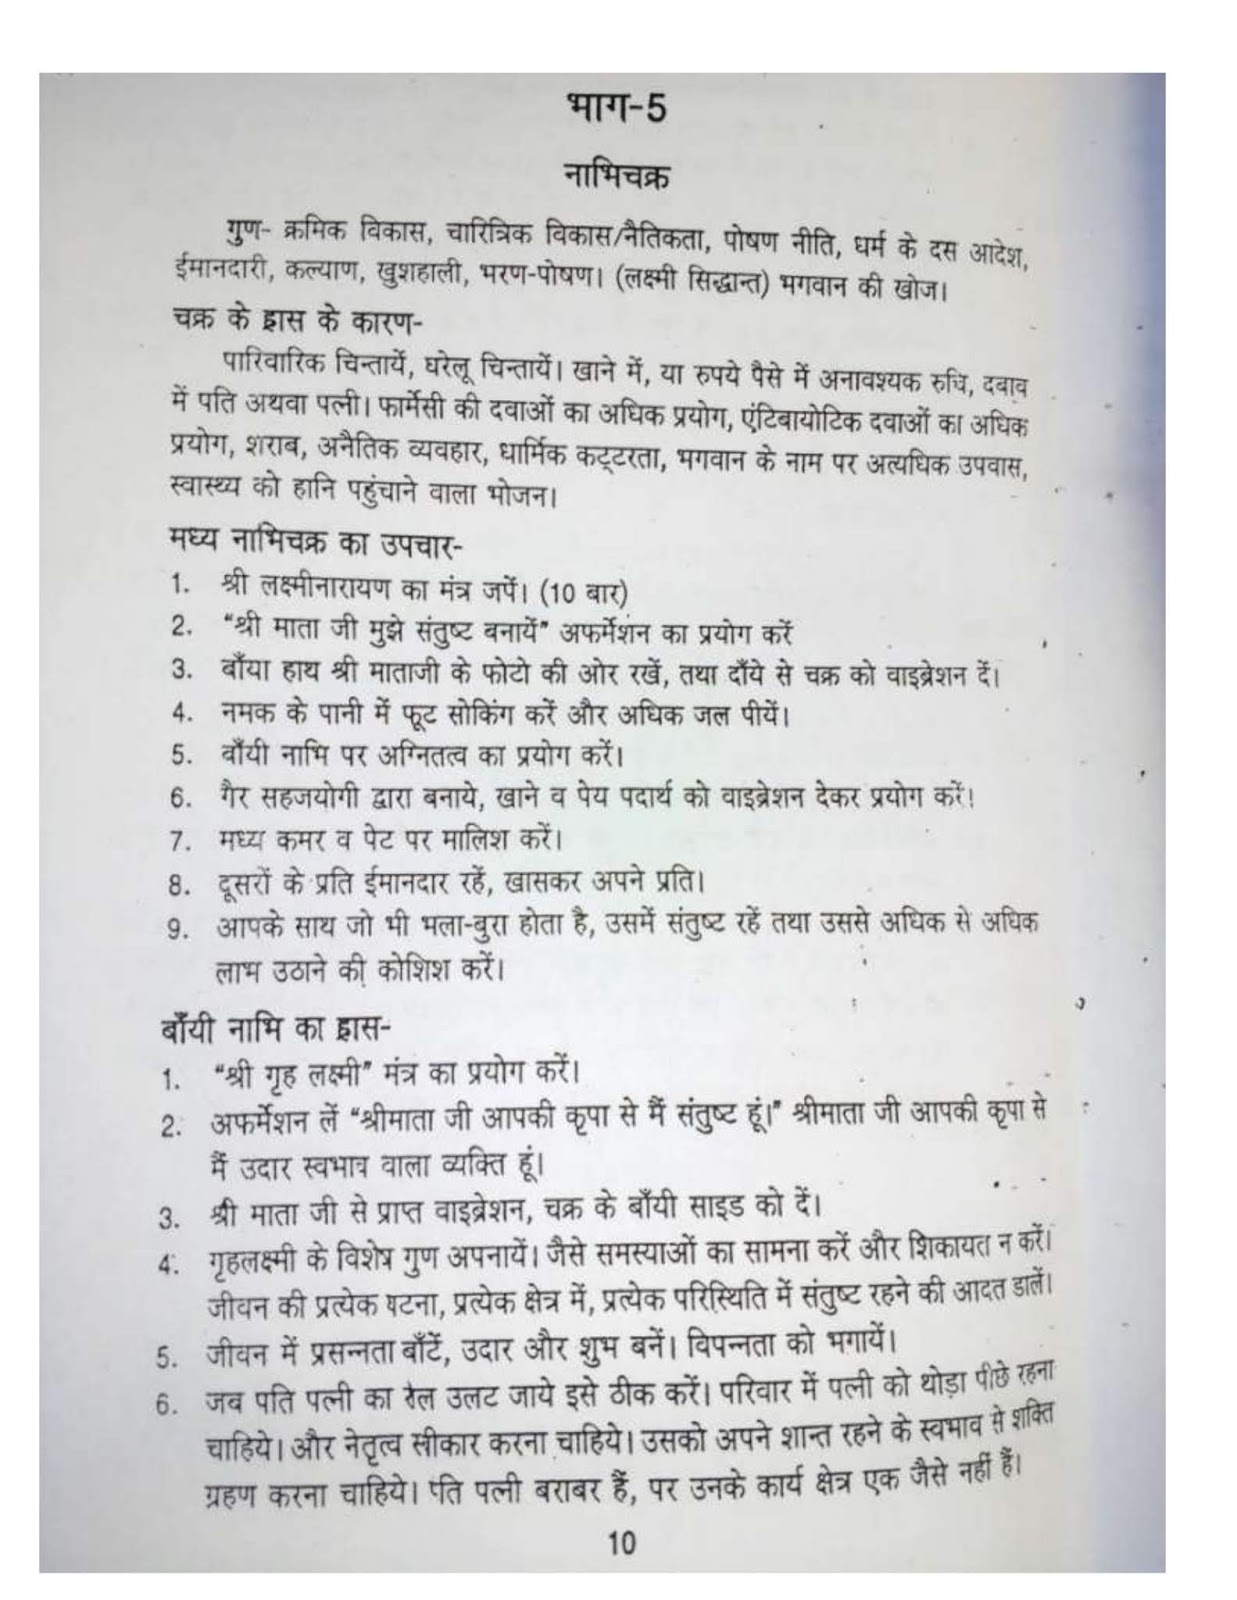 भाग-5
नाभिचक्र
गुण- क्रमिक विकास, चारित्रिक विकास/नैतिकता, पोषण नीति, धर्म के दस आदेश,
ईमानदारी, कल्याण, खुशहाली, भरण-पोषण। (लक्ष्मी सिद्धान्त) भगवान की खोज।
चक्र के ह्रास के कारण-
पारिवारिक चिन्तायें, घरेलू चिन्तायें। खाने में, या रुपये पैसे में अनावश्यक रुचि, दबाव
में पति अथवा पत्नी। फार्मेसी की दवाओं का अधिक प्रयोग, एंटिबायोटिक दवाओं का अधिक
प्रयोग, शराब, अनैतिक व्यवहार, धार्मिक कट्टरता, भगवान के नाम पर अत्यधिक उपवास,
स्वास्थ्य को हानि पहुंचाने वाला भोजन।
मध्य नाभिचक्र का उपचार-
1. श्री लक्ष्मीनारायण का मंत्र जपें। (10 बार)
2. “श्री माता जी मुझे संतुष्ट बनायें” अफर्मेशन का प्रयोग करें
3. बाँया हाथ श्री माताजी के फोटो की ओर रखें, तथा दाँये से चक्र को वाइब्रेशन दें।
4. नमक के पानी में फूट सोकिंग करें और अधिक जल पीयें।
5. बाँयी नाभि पर अग्नितत्व का प्रयोग करें।
6. गैर सहजयोगी द्वारा बनाये, खाने व पेय पदार्थ को वाइब्रेशन देकर प्रयोग करें।
7. मध्य कमर व पेट पर मालिश करें।
8. दूसरों के प्रति ईमानदार रहें, खासकर अपने प्रति।
9. आपके साथ जो भी भला-बुरा होता है, उसमें संतुष्ट रहें तथा उससे अधिक से अधिक
लाभ उठाने की कोशिश करें।
बाँयी नाभि का ह्रास-
1. “श्री गृह लक्ष्मी” मंत्र का प्रयोग करें।
2. अफर्मेशन लें “श्रीमाता जी आपकी कृपा से मैं संतुष्ट हूं।” श्रीमाता जी आपकी कृपा से
मैं उदार स्वभाव वाला व्यक्ति हूं।
3. श्री माता जी से प्राप्त वाइब्रेशन, चक्र के बाँयी साइड को दें।
4. गृहलक्ष्मी के विशेष गुण अपनायें। जैसे समस्याओं का सामना करें और शिकायत न करें।
जीवन की प्रत्येक घटना, प्रत्येक क्षेत्र में, प्रत्येक परिस्थिति में संतुष्ट रहने की आदत डालें।
5. जीवन में प्रसन्नता बाँटें, उदार और शुभ बनें। विपन्नता को भगायें।
6. जब पति पत्नी का रोल उलट जाये इसे ठीक करें। परिवार में पत्नी को थोड़ा पीछे रहना
चाहिये। और नेतृत्व स्वीकार करना चाहिये। उसको अपने शान्त रहने के स्वभाव से शक्ति
ग्रहण करना चाहिये। पति पत्नी बराबर हैं, पर उनके कार्य क्षेत्र एक जैसे नहीं हैं।
10